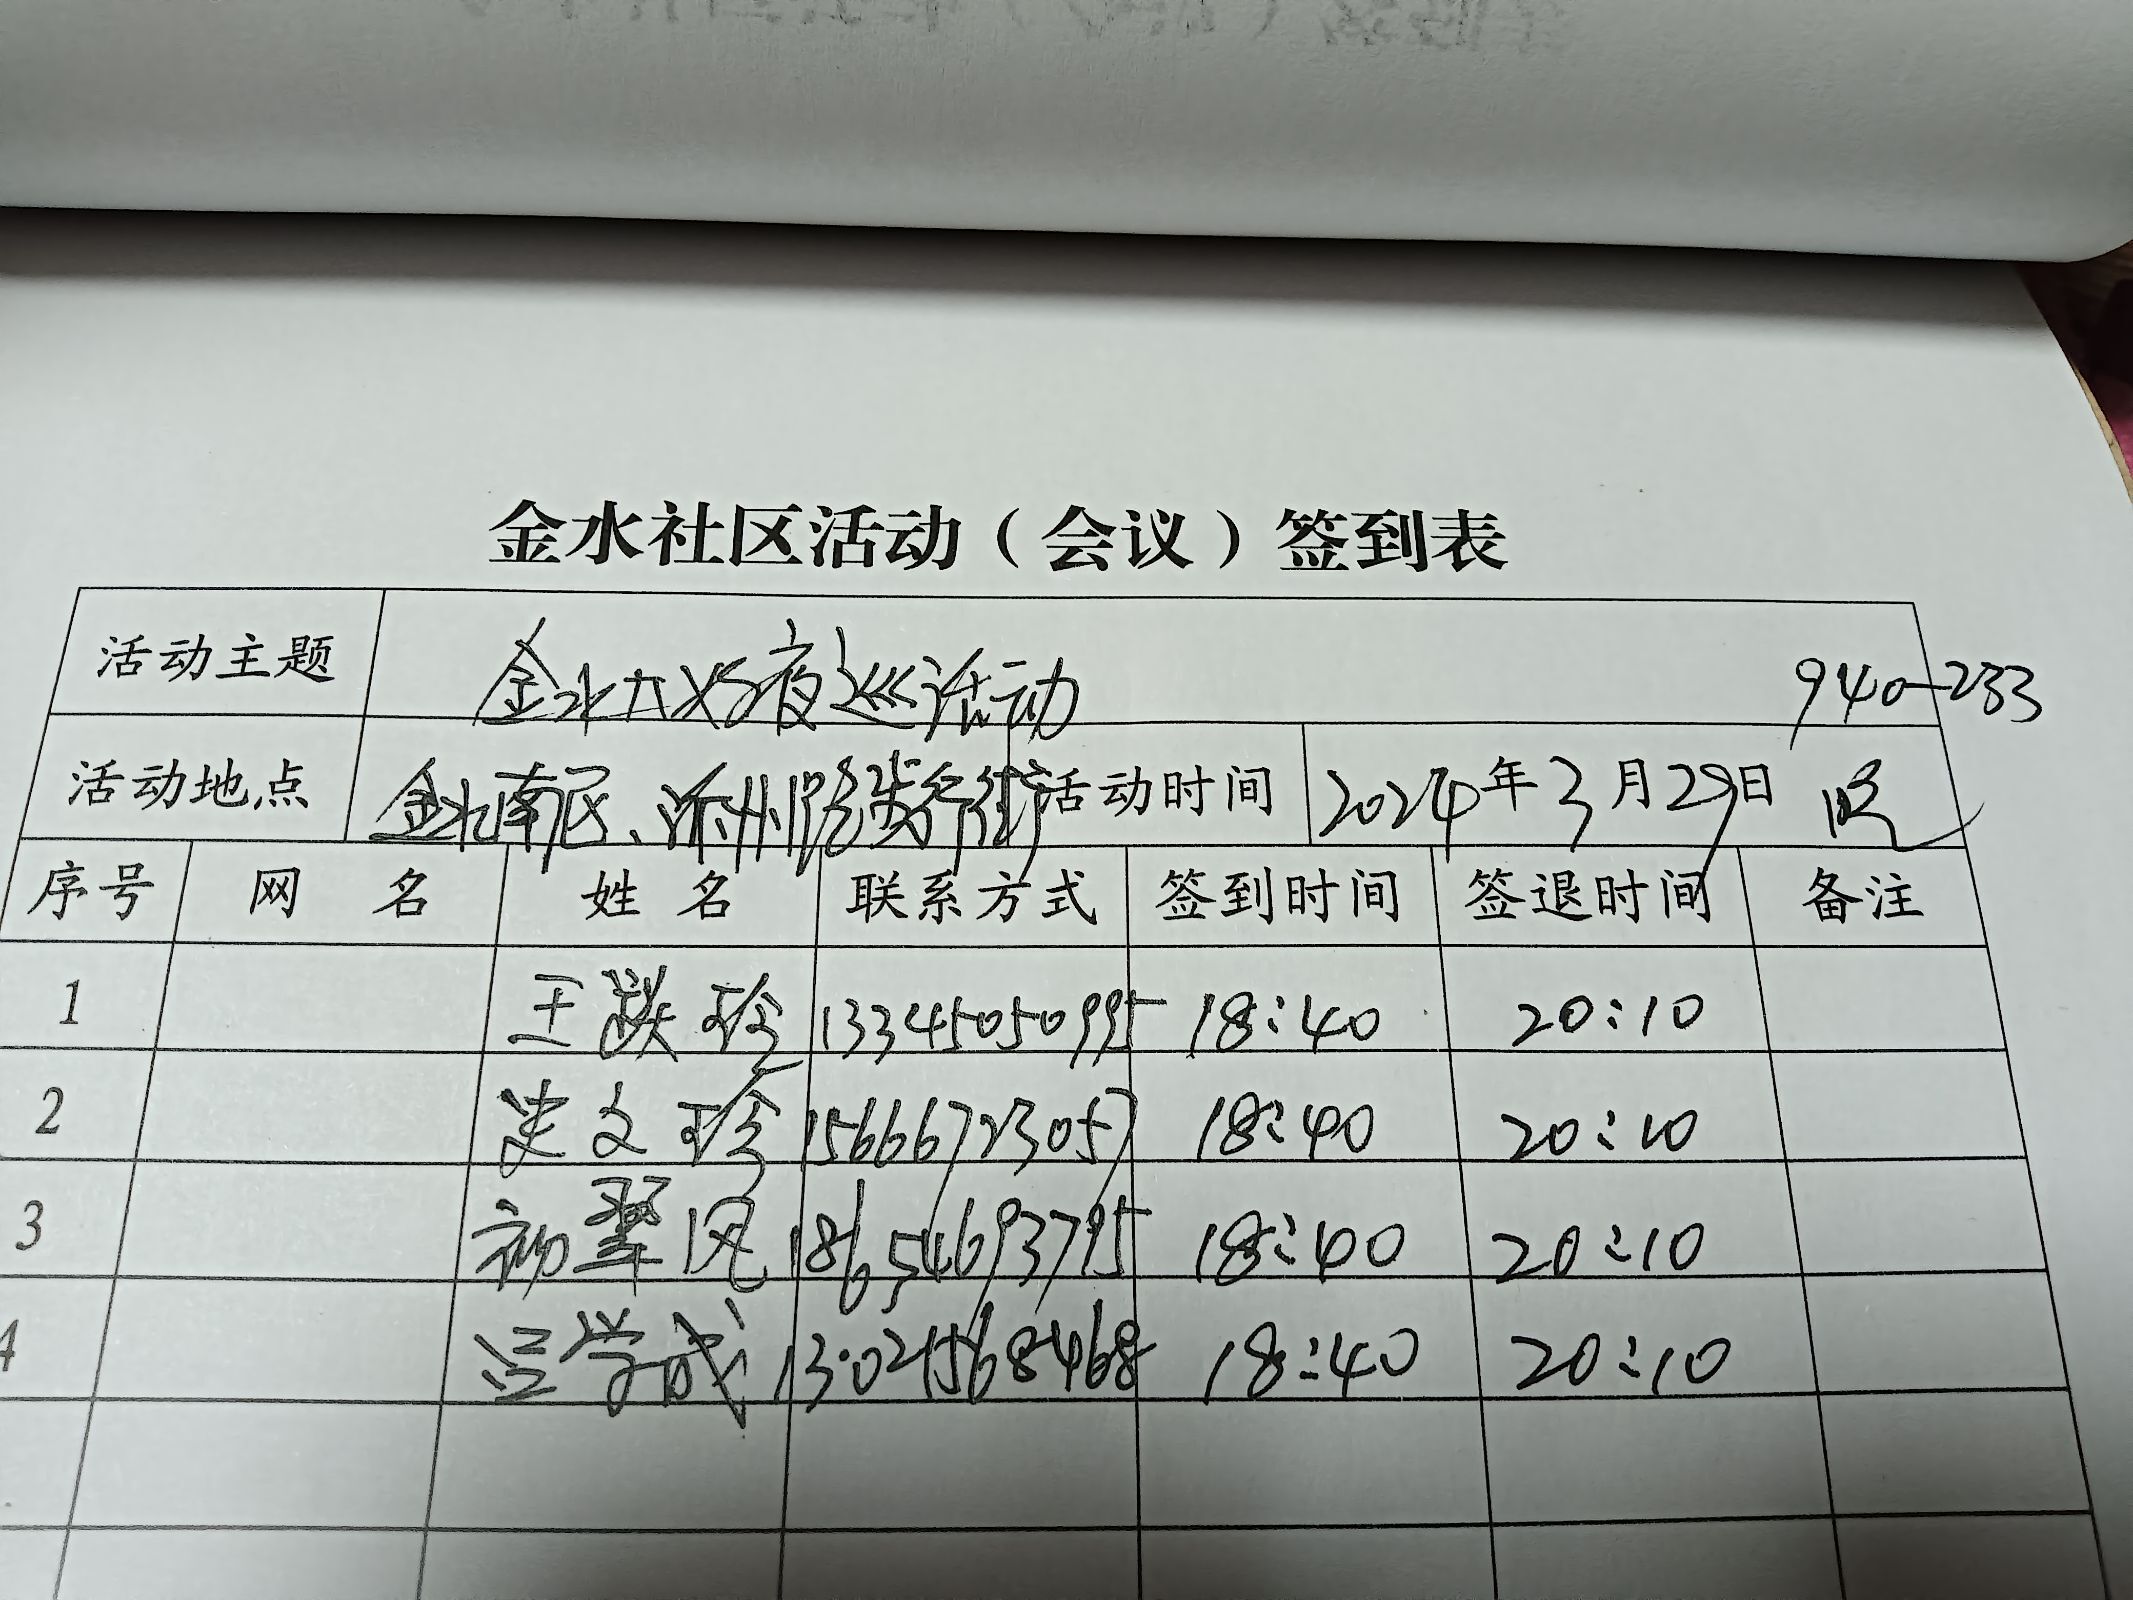 金水社区活动（会议）签到表
活动主题 金水大妈夜巡活动 940-233
活动地点 金水南区、沂州路步行街 活动时间 2024年3月29日 晚
序号 网名 姓名 联系方式 签到时间 签退时间 备注
1 王 珍 13345050995 18:40 20:10
2 文珍 15666723057 18:40 20:10
3 初翠凤 18654693795 18:40 20:10
4 吕学成 13021568468 18:40 20:10